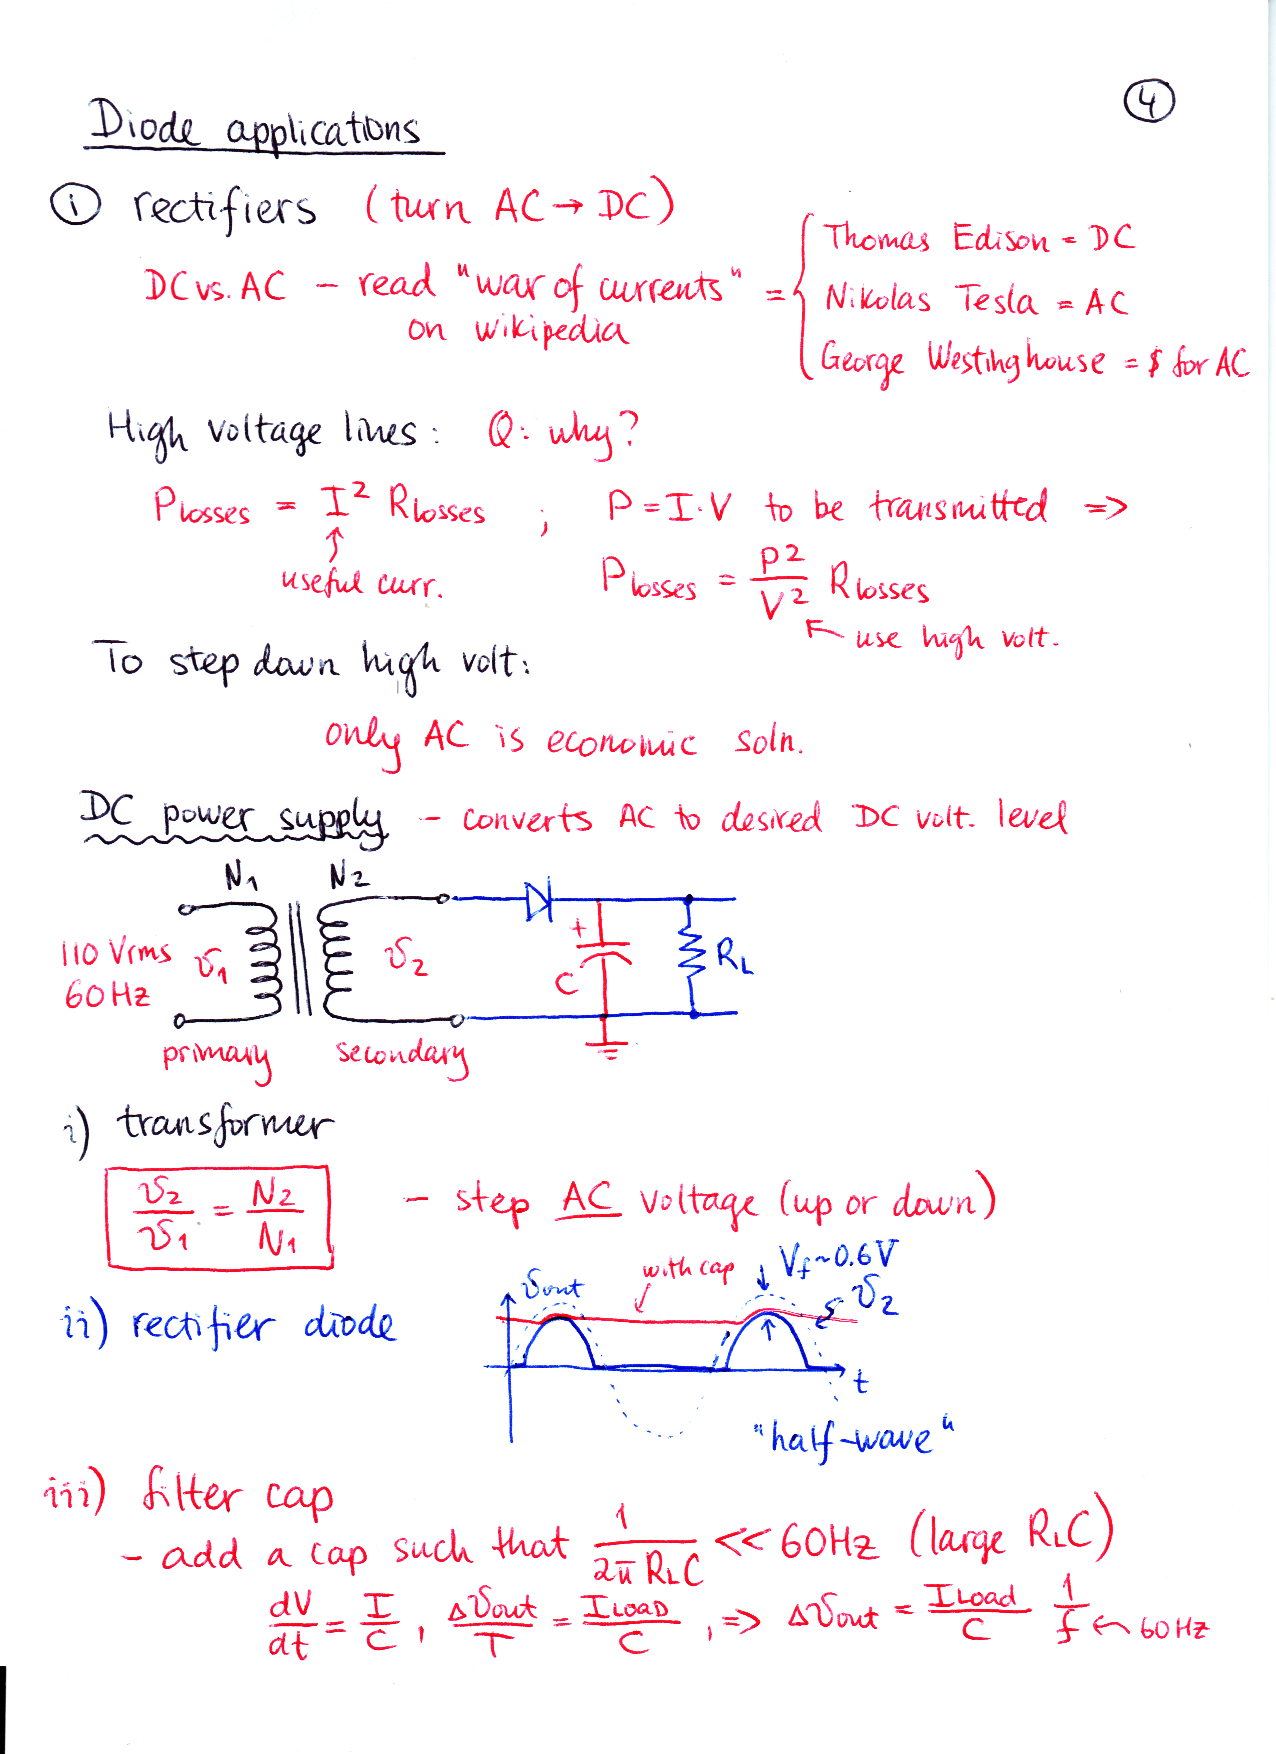 ④
Diode applications
① rectifiers (turn AC → DC)
DC vs. AC – read "war of currents" = { Thomas Edison = DC
on wikipedia
Nikolas Tesla = AC
George Westinghouse = $ for AC
High voltage lines: Q: why?
Plosses = I² Rlosses ; P = I·V to be transmitted =>
↑
useful curr.
Plosses = P²/V² Rlosses
↖ use high volt.
To step down high volt:
only AC is economic soln.
DC power supply – converts AC to desired DC volt. level
N1 N2
110 Vrms
60Hz
v1 v2 + C RL
primary secondary
i) transformer
v2/v1 = N2/N1 – step AC voltage (up or down)
with cap Vf ~ 0.6V
vout v2
ii) rectifier diode
t
"half-wave"
iii) filter cap
– add a cap such that 1/(2π RLC) << 60Hz (large RLC)
dV/dt = I/C , Δvout/T = ILOAD/C , => Δvout = ILoad/C 1/f ← 60Hz